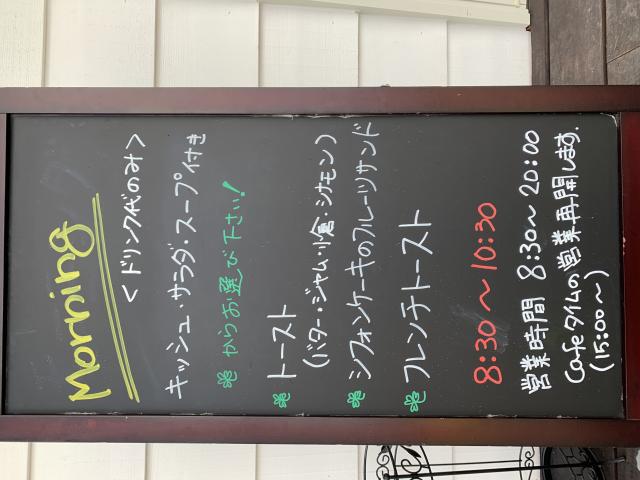 Morning
<ドリンク代のみ>
キッシュ・サラダ・スープ付き
からお選び下さい!
トースト
(バター・ジャム・小倉・シナモン)
シフォンケーキのフルーツサンド
フレンチトースト
8:30〜10:30
営業時間 8:30〜20:00
Cafeタイムの営業再開します.
(15:00〜)